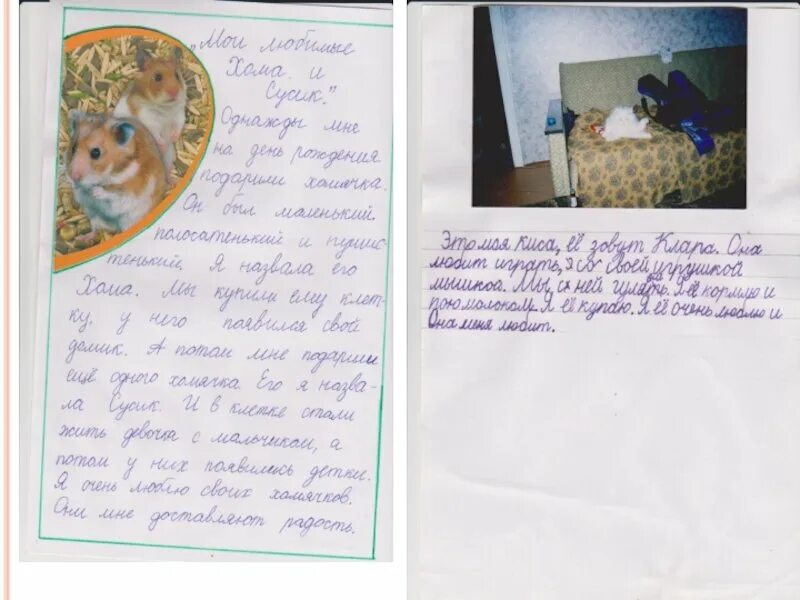 „Мои любимые
Хома и
Сусик."
Однажды мне
на день рождения
подарили хомячка.
Он был маленький
полосатенький и пушис-
тенький. Я назвала его
Хома. Мы купили ему клет-
ку, у него появился свой
домик. А потом мне подарили
ещё одного хомячка. Его я назва-
ла Сусик. И в клетке стали
жить девочка с мальчиком, а
потом у них появились детки.
Я очень люблю своих хомячков.
Они мне доставляют радость.
Это моя киса, её зовут Клара. Она
любит играть, со своей игрушкой
мышкой. Мы с ней гуляем. Я её кормлю и
пою молоком. Я её купаю. Я её очень люблю и
Она меня любит.